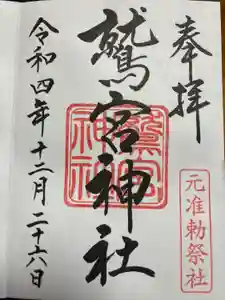 奉拝
鷲宮神社
令和四年十二月二十六日
元准勅祭社
鷲宮神社